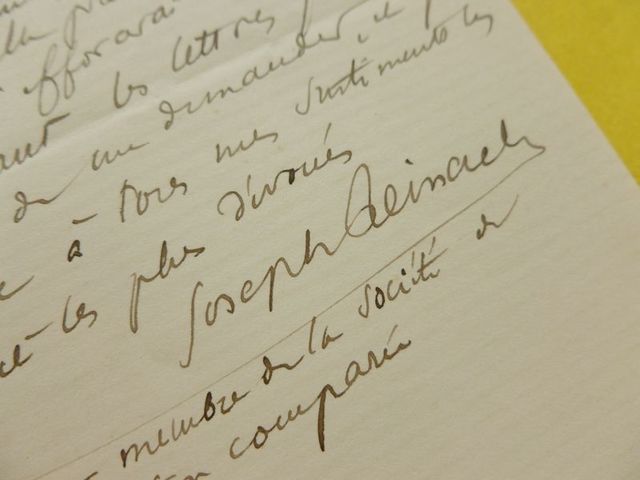 les lettres
de me demander, et
à tous mes sentiments les
et les plus dévoués
Joseph Reinach
membre de la Société de
comparée